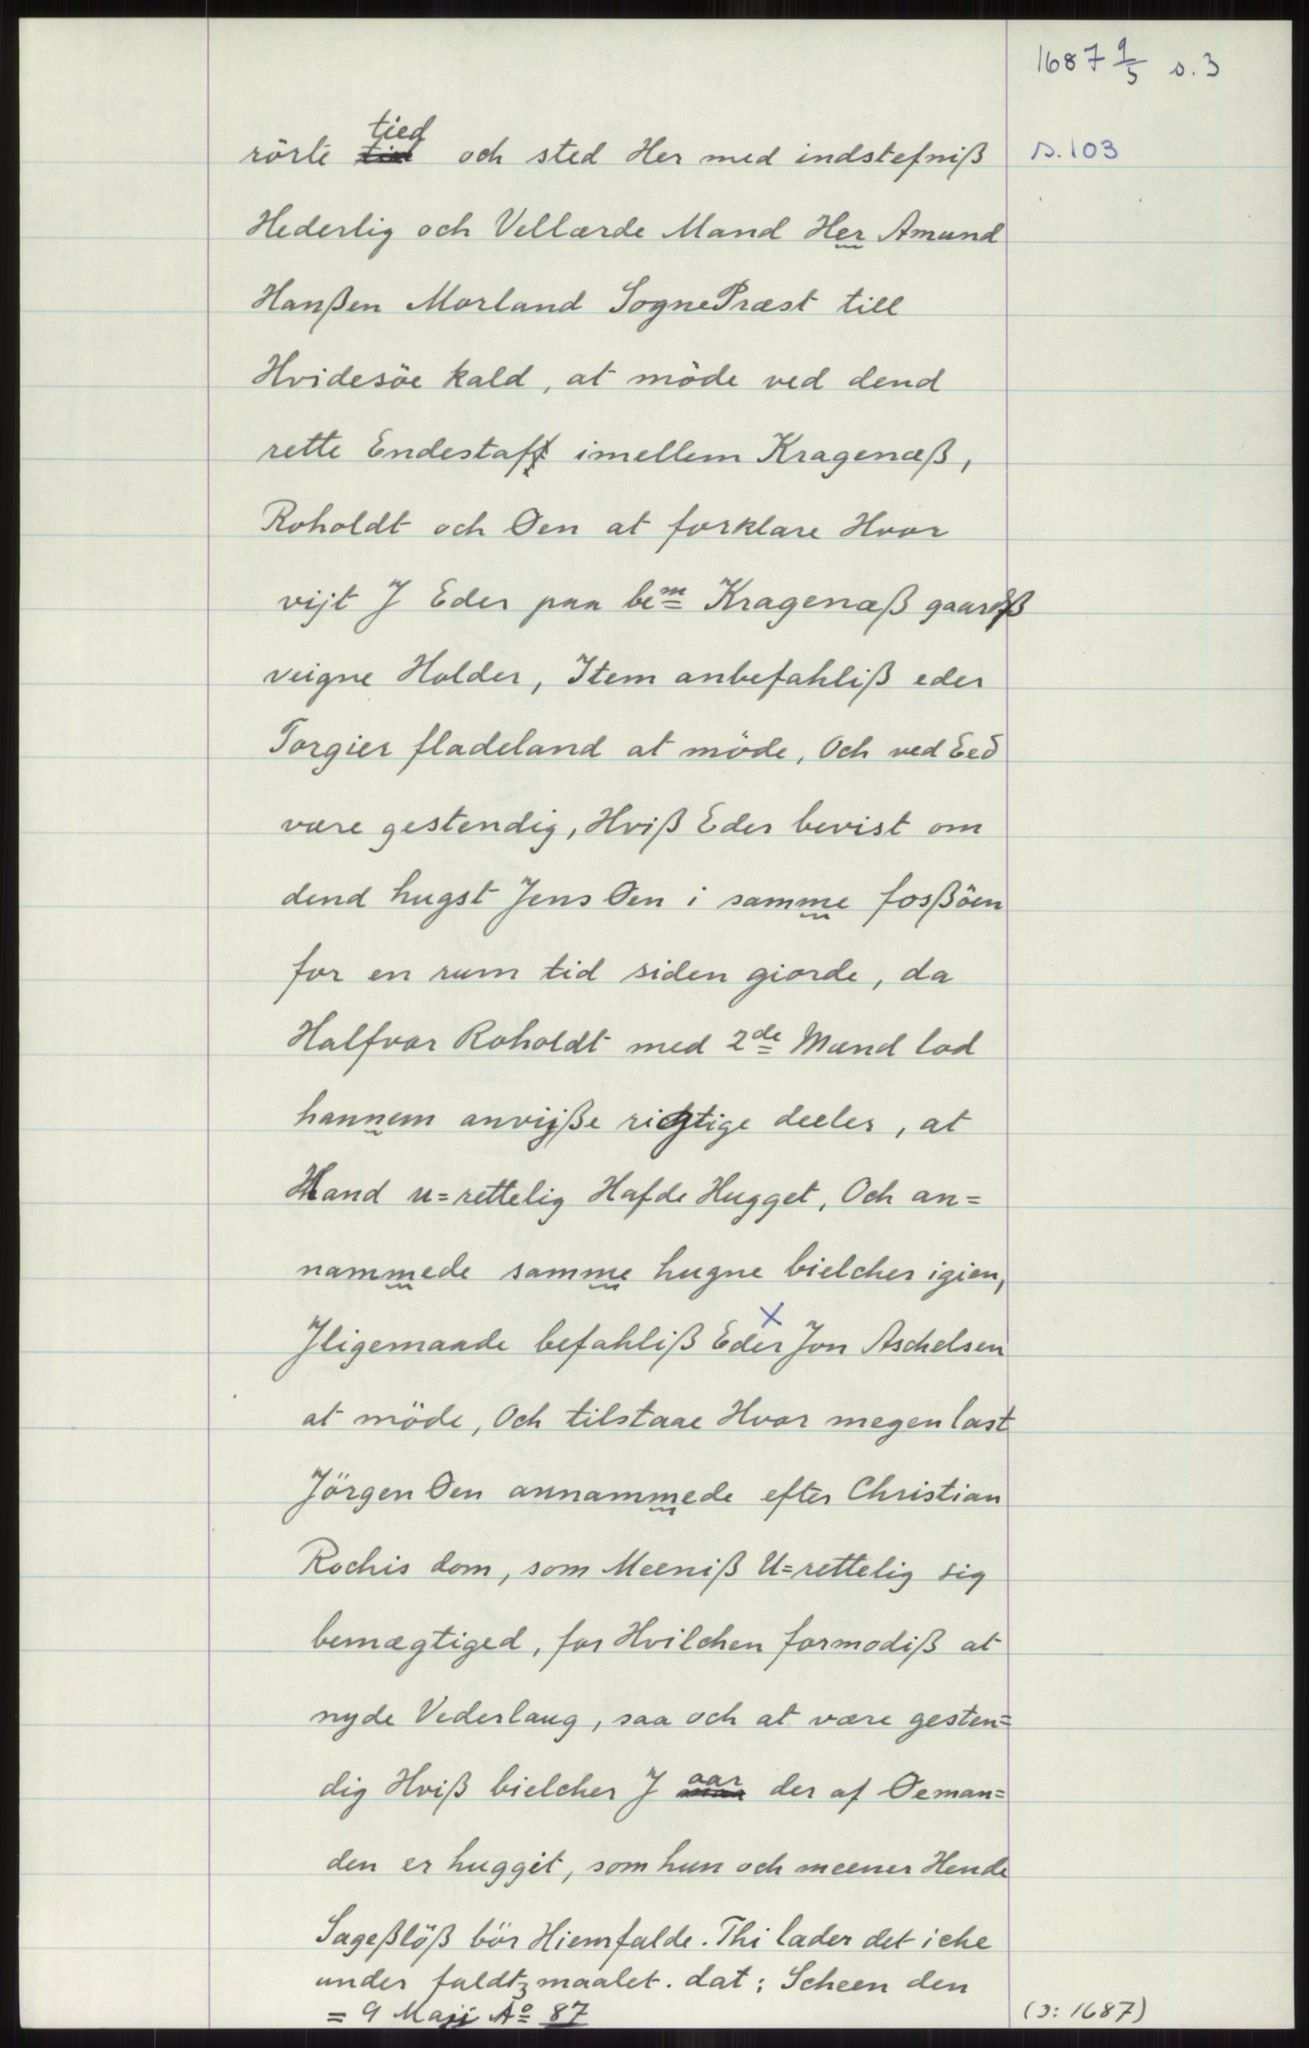 1687 9/5 s. 3
rörte tied och sted Her med indstefniß
s. 103
Hederlig och Vellærde Mand Her Amund
Hanßen Morland SognePræst till
Hvidesöe kald, at möde ved dend
rette Endestaf imellem Kragenæß,
Roholdt och Øen at forklare Hvor
vijt J Eder paa bem Kragenæß gaardß
veigne Holder, Item anbefahliß eder
Torgier fladeland at möde, Och ved Eed
være gestendig, Hviß Eder bevist om
dend hugst Jens Øen i samme fosßöen
for en rum tid siden giorde, da
Halfvor Roholdt med 2de Mænd lod
hannem anvijße rigtige deeler, at
Hand u=rettelig Hafde Hugget, Och an=
nammede samme hugne bielcher igien,
Jligemaade befahliß Eder x Jon Aschelsen
at möde, Och tilstaae Hvor megen last
Jörgen Øen annammede efter Christian
Rochis dom, som Meeniß U=rettelig sig
bemægtiged, for Hvilchen formodiß at
nyde Vederlaug, saa och at være gesten=
dig Hviß bielcher J aar der af Øeman=
den er huggit, som hun och meener Hende
Sageßlöß bör Hiemfalde. Thi lader det iche
under faldtz maalet. dat: Scheen den
= 9 Maji Ao 87
(ɔ: 1687)